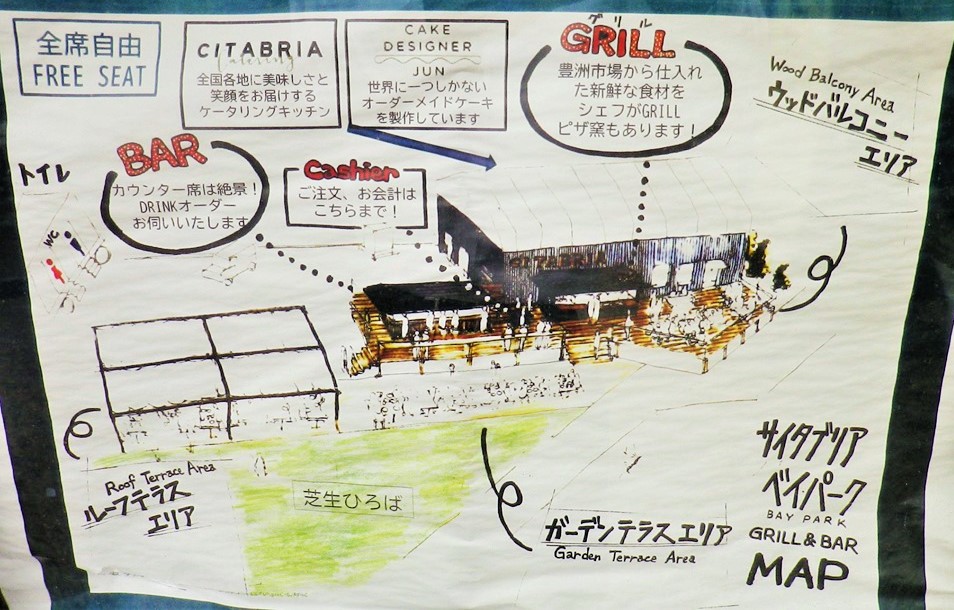 全席自由
FREE SEAT
CITABRIA
Catering
全国各地に美味しさと
笑顔をお届けする
ケータリングキッチン
CAKE
DESIGNER
JUN
世界に一つしかない
オーダーメイドケーキ
を製作しています
グリル
GRILL
豊洲市場から仕入れ
た新鮮な食材を
シェフがGRILL
ピザ窯もあります!
Wood Balcony Area
ウッドバルコニー
エリア
トイレ
WC
BAR
カウンター席は絶景!
DRINKオーダー
お伺いいたします
Cashier
ご注文、お会計は
こちらまで!
CITABRIA
Roof Terrace Area
ルーフテラス
エリア
芝生ひろば
ガーデンテラスエリア
Garden Terrace Area
サイタブリア
ベイパーク
BAY PARK
GRILL & BAR
MAP